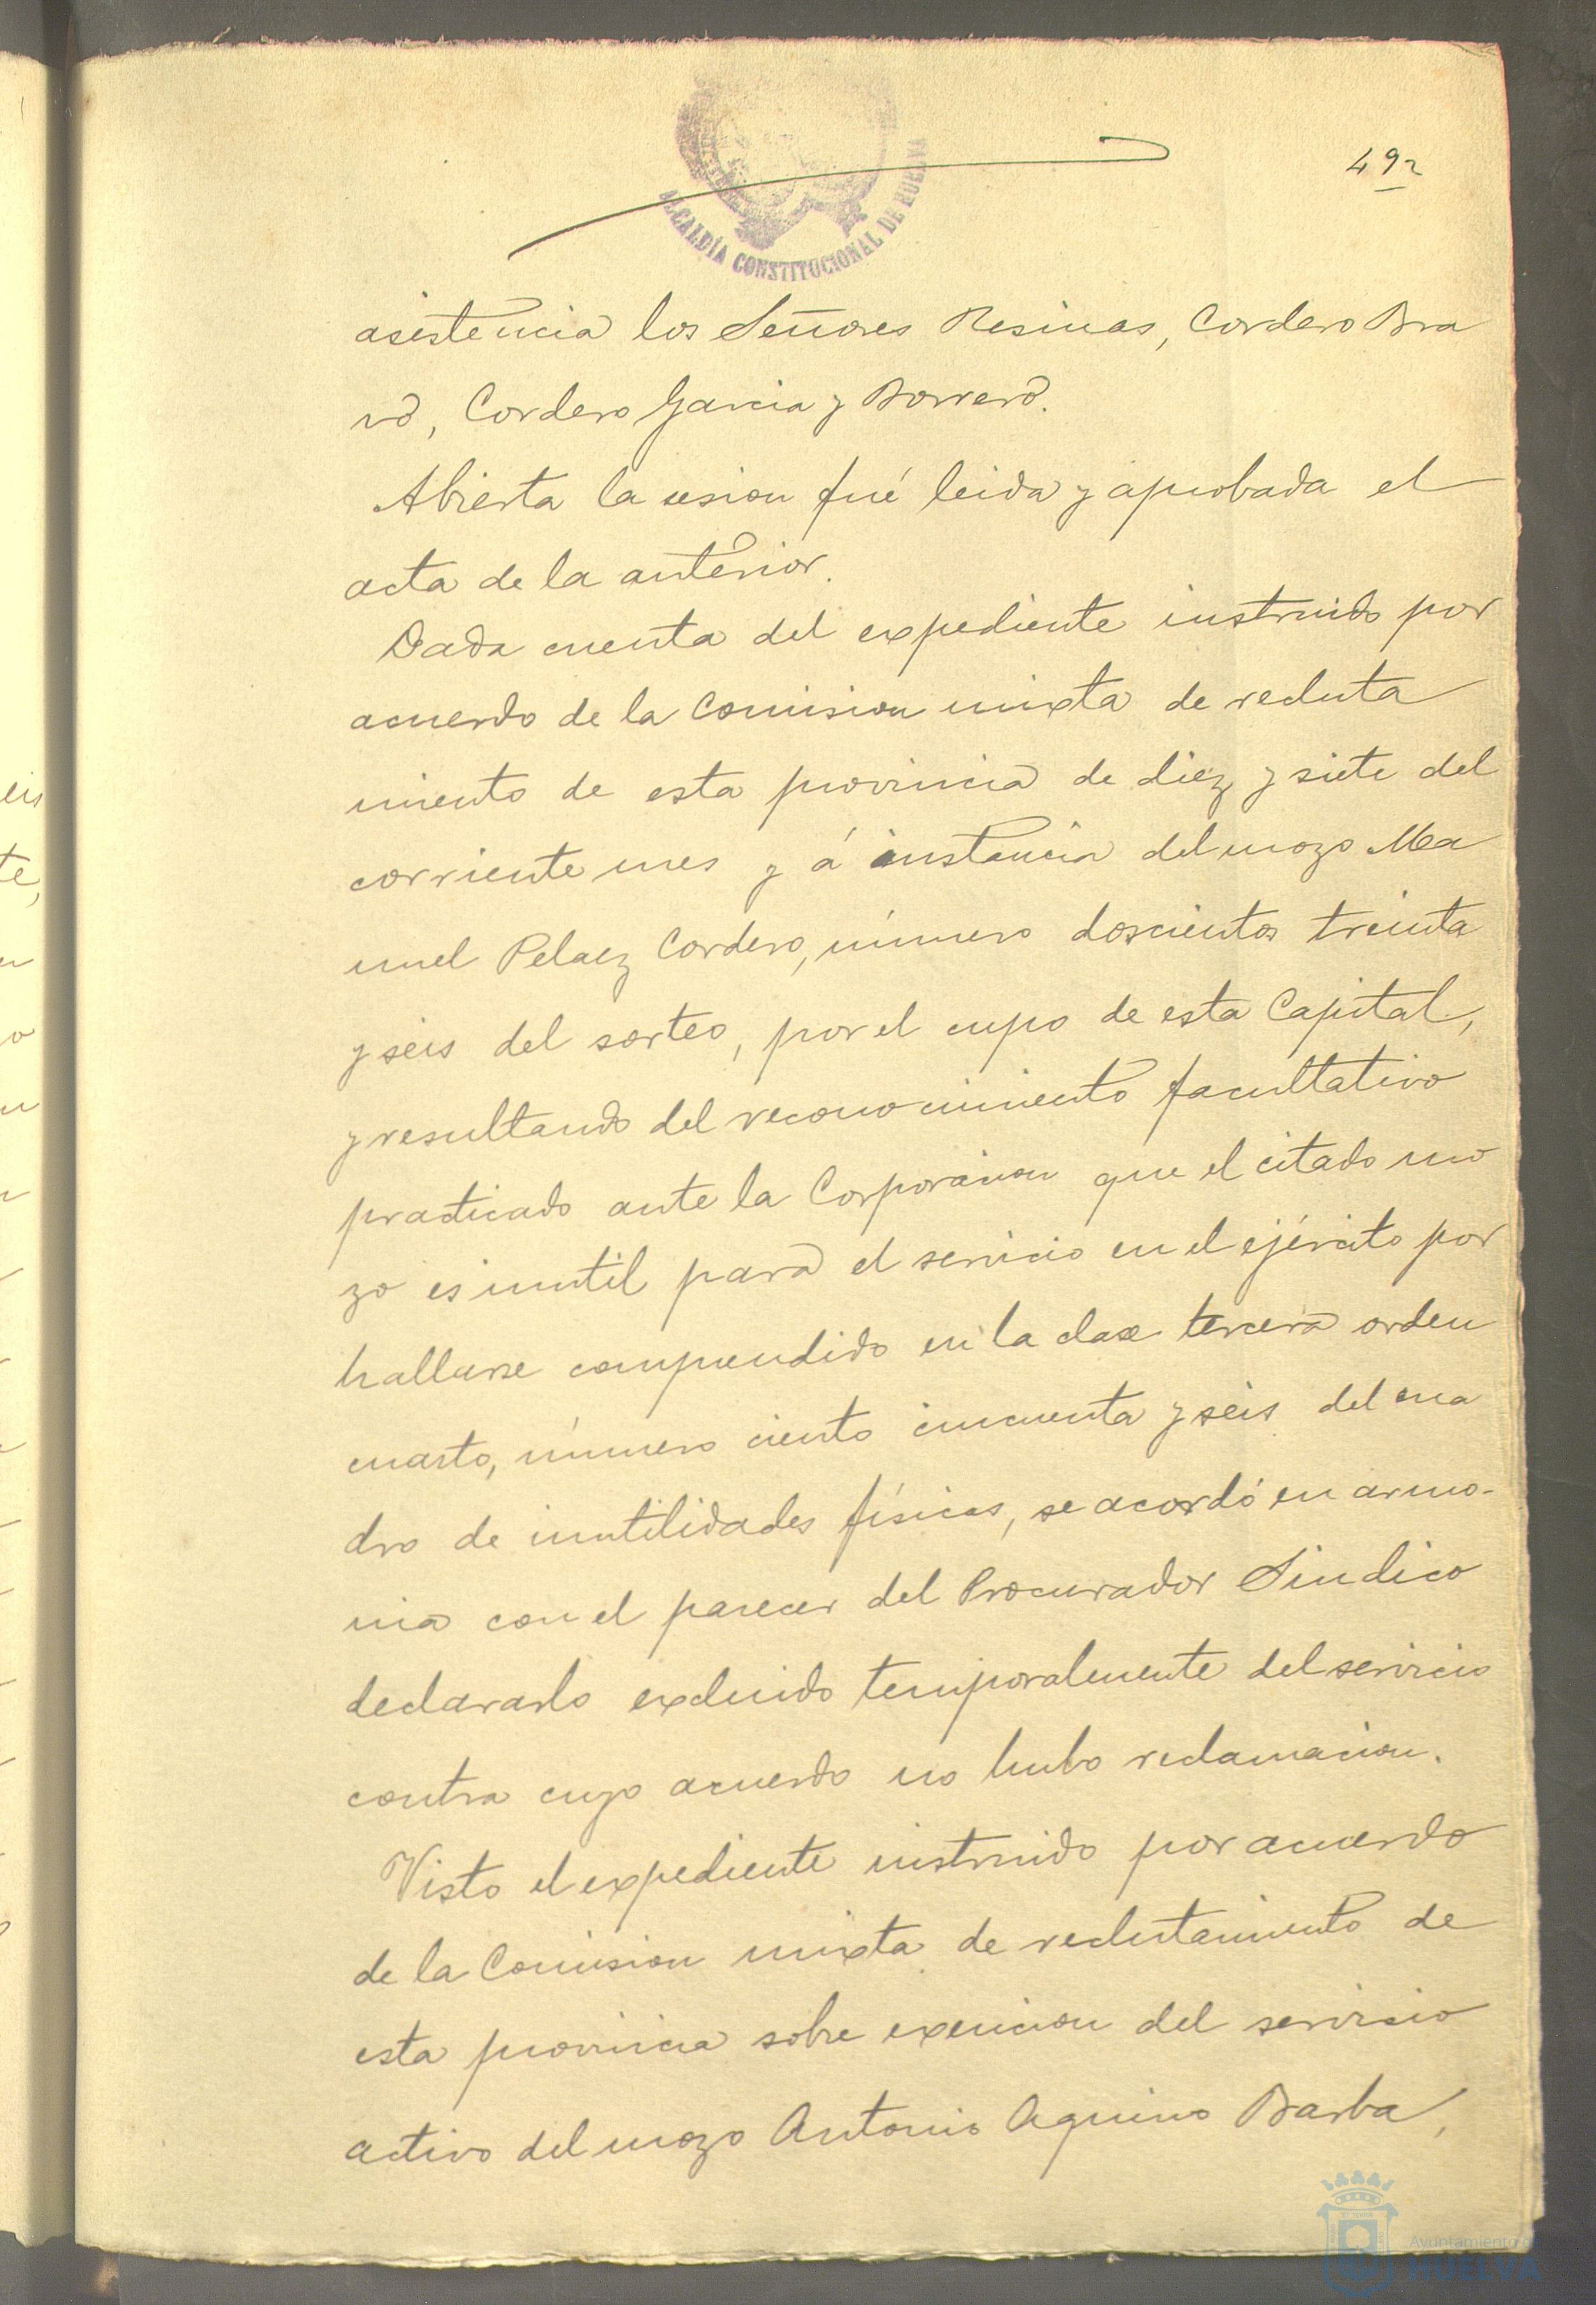 492
ALCALDÍA CONSTITUCIONAL DE HUELVA
asistencia los Señores Resinas, Cordero Bra
vo, Cordero Garcia y Borrero.
Abierta la sesion fué leida y aprobada el
acta de la anterior.
Dada cuenta del expediente instruido por
acuerdo de la Comision mixta de recluta
miento de esta provincia de diez y siete del
corriente mes y á instancia del mozo Ma
nuel Pelaez Cordero, número doscientos treinta
y seis del sorteo, por el cupo de esta Capital,
y resultando del reconocimiento facultativo
practicado ante la Corporacion que el citado mo
zo es inutil para el servicio en el ejército por
hallarse comprendido en la clase tercera orden
cuarto, número ciento cincuenta y seis del cua
dro de inutilidades físicas, se acordó en armo-
nia con el parecer del Procurador Sindico
declararlo excluido temporalmente del servicio
contra cuyo acuerdo no hubo reclamacion.
Visto el expediente instruido por acuerdo
de la Comision mixta de reclutamiento de
esta provincia sobre exencion del servicio
activo del mozo Antonio Aquino Barba,
Ayuntamiento
HUELVA